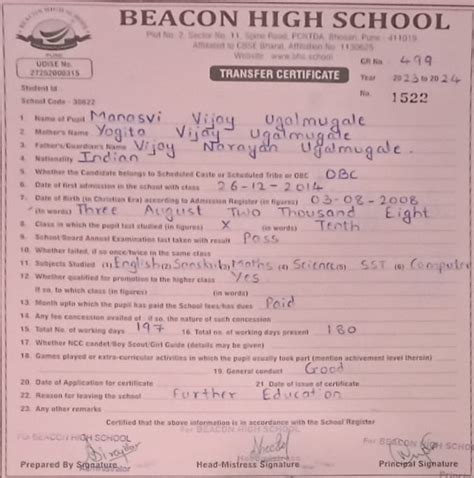 BEACON HIGH SCHOOL
Plot No. 2, Sector No. 11, Spine Road, PCNTDA, Bhosari, Pune - 411019
Affiliated to CBSE Bharat, Affiliation No. 1130625
Website : www.bhs.school
PUNE
UDISE No.
27252000315
GR No. 499
TRANSFER CERTIFICATE
Year 2023 to 2024
Student Id
No. 1522
School Code - 30622
1. Name of Pupil Manasvi Vijay Ugalmugale
2. Mother's Name Yogita Vijay Ugalmugale
3. Father's/Guardian's Name Vijay Narayan Ugalmugale.
4. Nationality Indian
5. Whether the Candidate belongs to Scheduled Caste or Scheduled Tribe or OBC OBC
6. Date of first admission in the school with class 26-12-2014
7. Date of Birth (in Christian Era) according to Admission Register (in figures) 03-08-2008
(in words) Three August Two Thousand Eight
8. Class in which the pupil last studied (in figures) X (in words) Tenth
9. School/Board Annual Examination last taken with result Pass
10. Whether failed, if so once/twice in the same class
11. Subjects Studied (1) English (2) Sanskrit (3) Maths (4) Science (5) SST (6) Computer
12. Whether qualified for promotion to the higher class Yes
If so, to which class (in figures) (in words)
13. Month upto which the pupil has paid the School fees/has dues Paid
14. Any fee concession availed of : if so, the nature of such concession
15. Total No. of working days 197 16. Total No. of working days present 180
17. Whether NCC candet/Boy Scout/Girl Guide (details may be given)
18. Games played or extra-curricular activities in which the pupil usually took part (mention achievement level therein)
19. General conduct Good
20. Date of Application for certificate 21. Date of issue of certificate
22. Reason for leaving the school Further Education
23. Any other remarks
Certified that the above information is in accordance with the School Register
For BEACON HIGH SCHOOL For BEACON HIGH SCHOOL For BEACON HIGH SCHOOL
Headmistress
Prepared By Signature Head-Mistress Signature Principal Signature